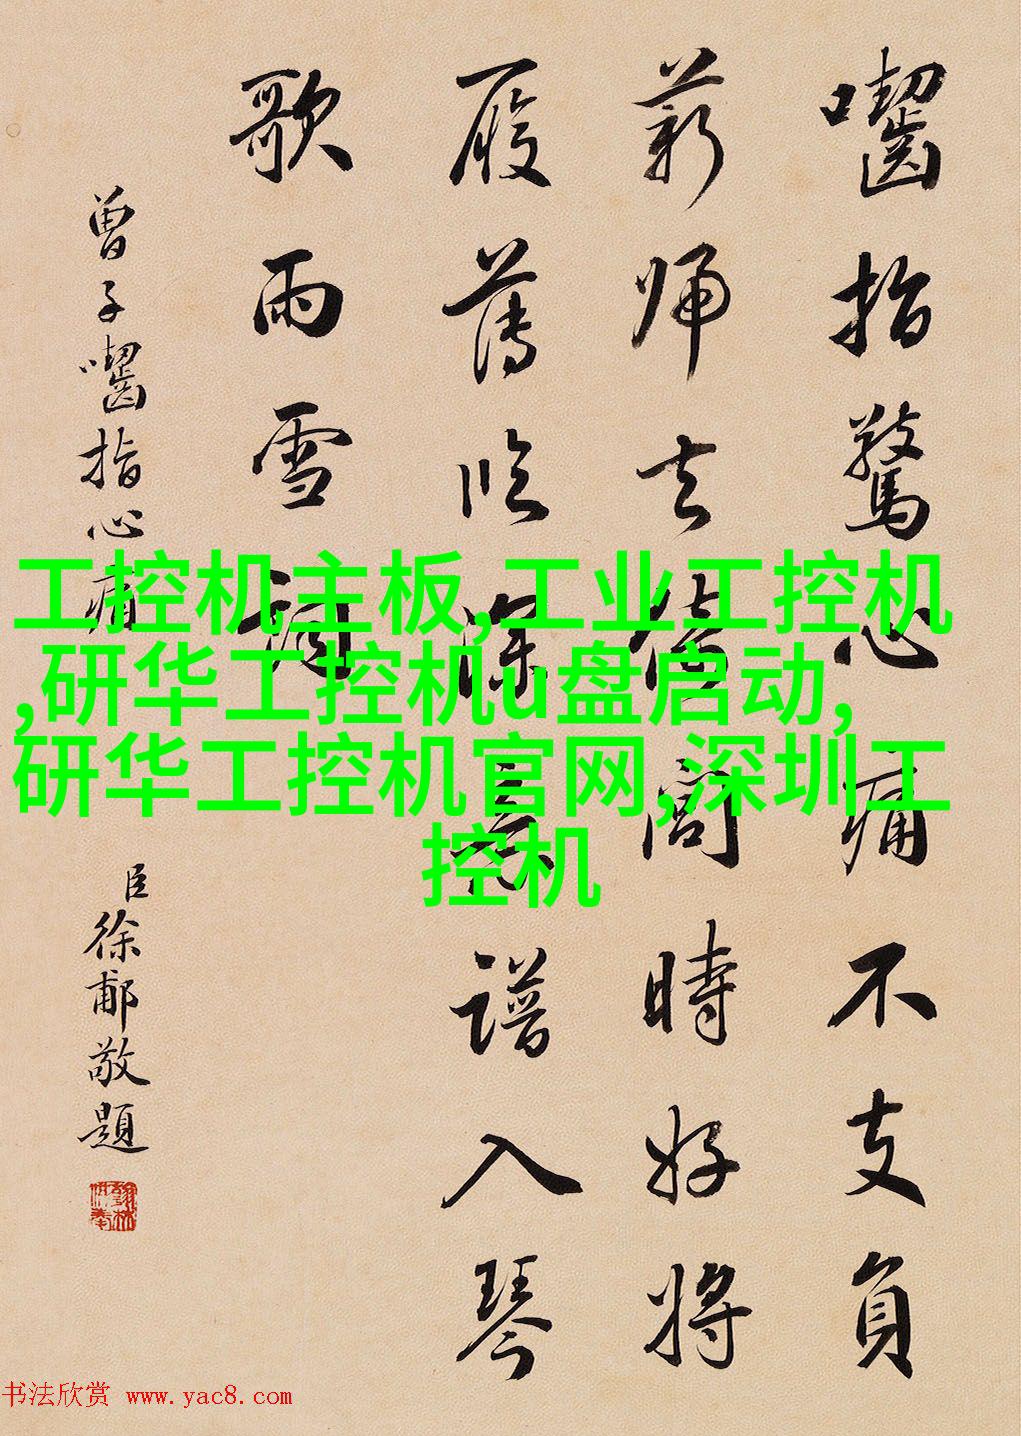 囓指驚心痛不支負
薪歸去倚閭時好將
履薄臨深意譜入琴
歌雨雪詞
曾子囓指心痛
臣徐郙敬題
工控机主板,工业工控机
,研华工控机u盘启动,
研华工控机官网,深圳工
控机
书法欣赏 www.yac8.com